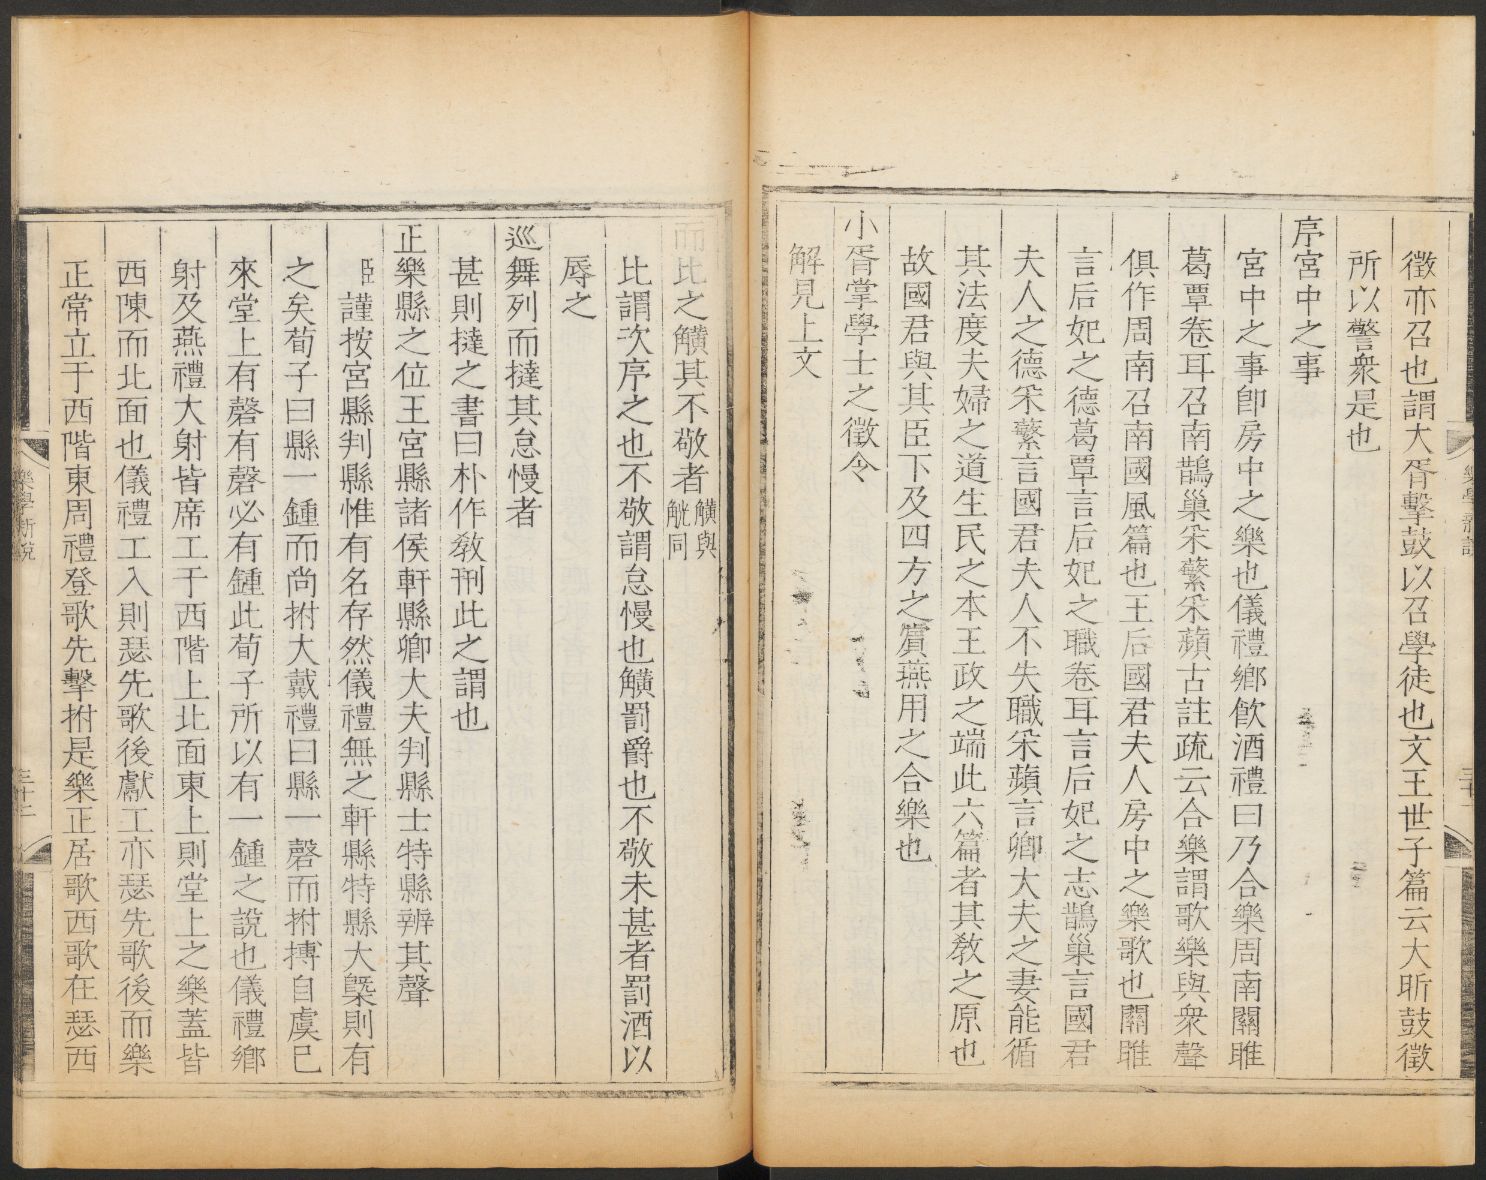 徵亦召也謂大胥擊鼓以召學徒也文王世子篇云大昕鼓徵
所以警衆是也
序宮中之事
宮中之事卽房中之樂也儀禮鄉飮酒禮曰乃合樂周南關雎
葛覃卷耳召南鵲巢采蘩采蘋古註疏云合樂謂歌樂與衆聲
俱作周南召南國風篇也王后國君夫人房中之樂歌也關雎
言后妃之德葛覃言后妃之職卷耳言后妃之志鵲巢言國君
夫人之德采蘩言國君夫人不失職采蘋言卿大夫之妻能循
其法度夫婦之道生民之本王政之端此六篇者其敎之原也
故國君與其臣下及四方之賔燕用之合樂也
小胥掌學士之徵令
解見上文
樂學新說
三十一
而比之觵其不敬者觵與觥同
比謂次序之也不敬謂怠慢也觵罰爵也不敬未甚者罰酒以
辱之
巡舞列而撻其怠慢者
甚則撻之書曰朴作敎刑此之謂也
正樂縣之位王宮縣諸侯軒縣卿大夫判縣士特縣辨其聲
臣謹按宮縣判縣惟有名存然儀禮無之軒縣特縣大槩則有
之矣荀子曰縣一鍾而尚拊大戴禮曰縣一磬而拊搏自虞已
來堂上有磬有磬必有鍾此荀子所以有一鍾之說也儀禮鄉
射及燕禮大射皆席工于西階上北面東上則堂上之樂蓋皆
西陳而北面也儀禮工入則瑟先歌後獻工亦瑟先歌後而樂
正常立于西階東周禮登歌先擊拊是樂正居歌西歌在瑟西
樂學新說
三十二